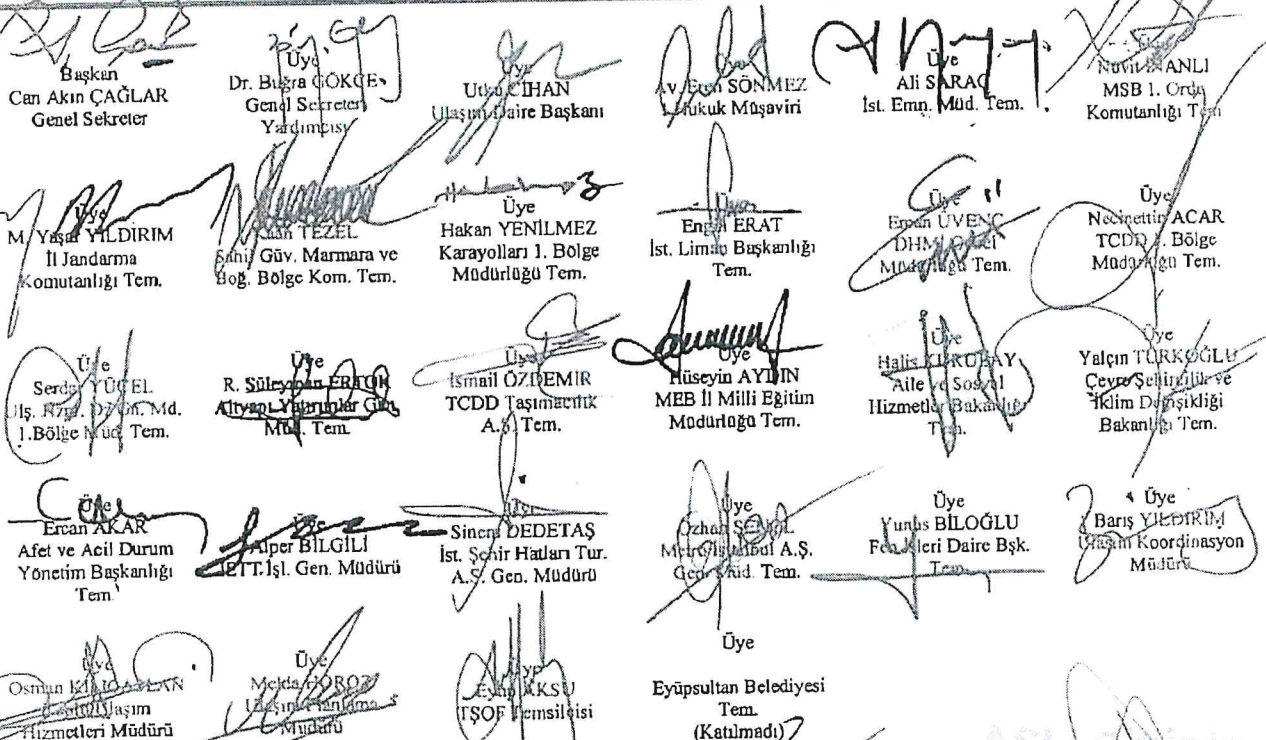 Başkan
Can Akın ÇAĞLAR
Genel Sekreter
Üye
Dr. Buğra GÖKÇE
Genel Sekreter
Yardımcısı
Üye
Utku CİHAN
Ulaşım Daire Başkanı
Av. Eren SÖNMEZ
1. Hukuk Müşaviri
Üye
Ali SARAÇ
İst. Emn. Müd. Tem.
İNANLI
MSB 1. Ordu
Komutanlığı Tem
Üye
M. Yaşar YILDIRIM
İl Jandarma
Komutanlığı Tem.
TEZEL
Sahil Güv. Marmara ve
Boğ. Bölge Kom. Tem.
Üye
Hakan YENİLMEZ
Karayolları 1. Bölge
Müdürlüğü Tem.
Üye
Engin ERAT
İst. Liman Başkanlığı
Tem.
Üye
ÜVENÇ
DHMİ Genel
Müdürlüğü Tem.
Üye
Necmettin ACAR
TCDD 1. Bölge
Müdürlüğü Tem.
Üye
Serdar YÜCEL
Md.
1.Bölge Müd. Tem.
Üye
R. Süleyman ERTÜR
Altyapı Yatırımlar Gen.
Müd. Tem.
Üye
İsmail ÖZDEMİR
TCDD Taşımacılık
A.Ş. Tem.
Üye
Hüseyin AYDIN
MEB İl Milli Eğitim
Müdürlüğü Tem.
Üye
Halis
Aile ve Sosyal
Hizmetler Bakanlığı
Tem.
Üye
Yalçın TÜRKOĞLU
Çevre Şehircilik ve
İklim Değişikliği
Bakanlığı Tem.
Üye
Ercan AKAR
Afet ve Acil Durum
Yönetim Başkanlığı
Tem
Üye
Alper BİLGİLİ
İETT.İşl. Gen. Müdürü
Üye
Sinem DEDETAŞ
İst. Şehir Hatları Tur.
A.Ş. Gen. Müdürü
Üye
Özhan
Metro İstanbul A.Ş.
Gen. Müd. Tem.
Üye
Yunus BİLOĞLU
Fen İşleri Daire Bşk.
Tem.
Üye
Barış YILDIRIM
Ulaşım Koordinasyon
Müdürü
Üye
Osman
Ulaşım
Hizmetleri Müdürü
Üye
Melda HOROZ
Ulaşım Planlama
Müdürü
Üye
Eyüp AKSU
TŞOF Temsilcisi
Üye
Eyüpsultan Belediyesi
Tem.
(Katılmadı)